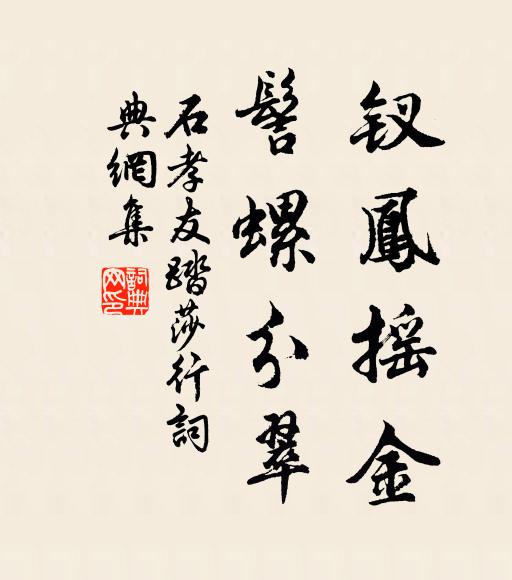 钗鳳摇金
髻螺分翠
石孝友踏莎行詞
典網集
詞典网印